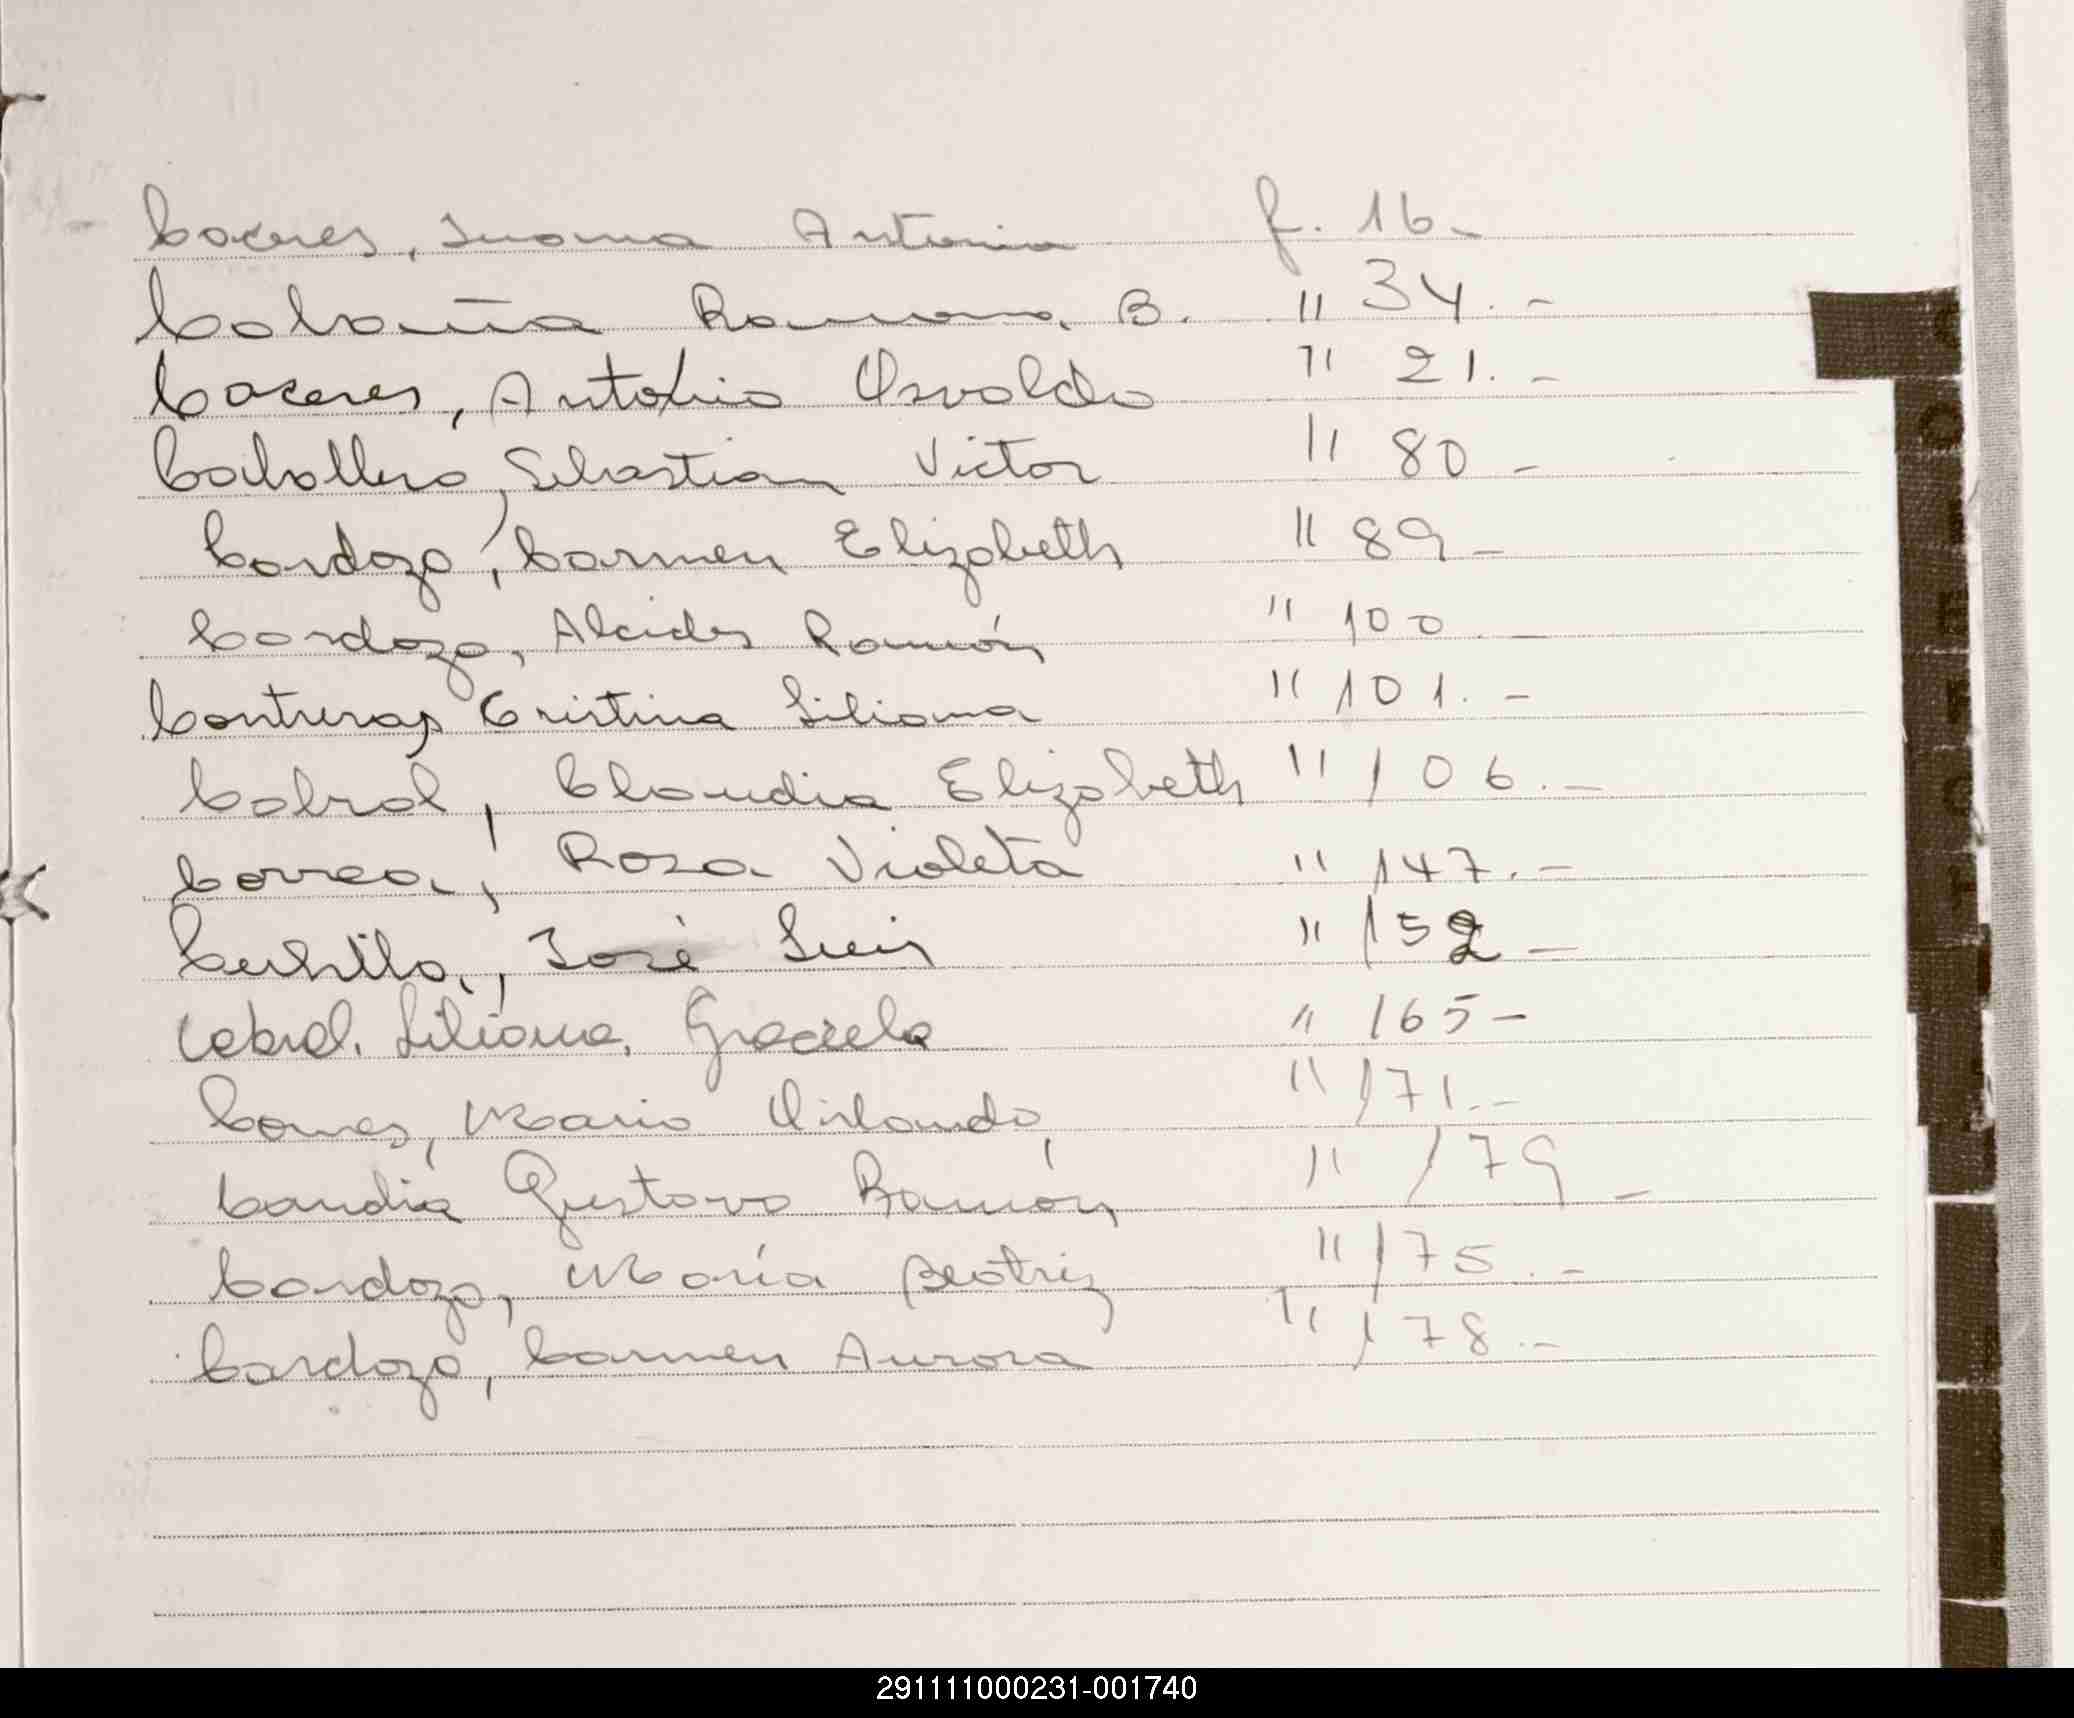 Caceres, Juana Antonia f. 16.-
Cabaña Ramona B. " 34.-
Caceres, Antonio Osvaldo " 21.-
Caballero, Sebastian Victor " 80-
Cardozo, Carmen Elizabeth " 89-
Cardozo, Alcides Ramón " 100.-
Contreras, Cristina Liliana " 101.-
Cabral, Claudia Elizabeth " 106.-
Correa, Rosa Violeta " 147.-
José Luis " 152-
Cabral, Liliana, Graciela " 165-
Mario Orlando, " 171.-
Candia Gustavo Ramón " 179-
Cardozo, María Beatriz " 175.-
Cardozo, Carmen Aurora " 178.-
291111000231-001740